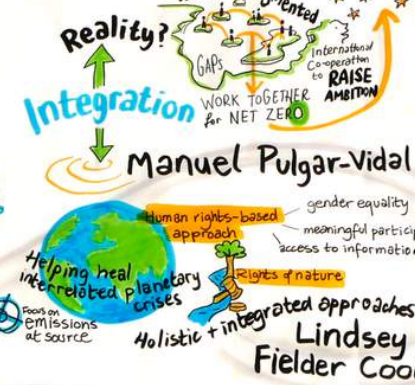 Reality?
GAPs
International
Co-operation
to RAISE
AMBITION
Integration
WORK ToGETHER
for NET ZERO
Manuel Pulgar-Vidal
Human rights-based
approach
gender equality
meaningful
access to
Helping heal
interrelated planetary
crises
Rights of nature
Focus on
emissions
at source
Holistic + integrated approaches
Lindsey
Fielder